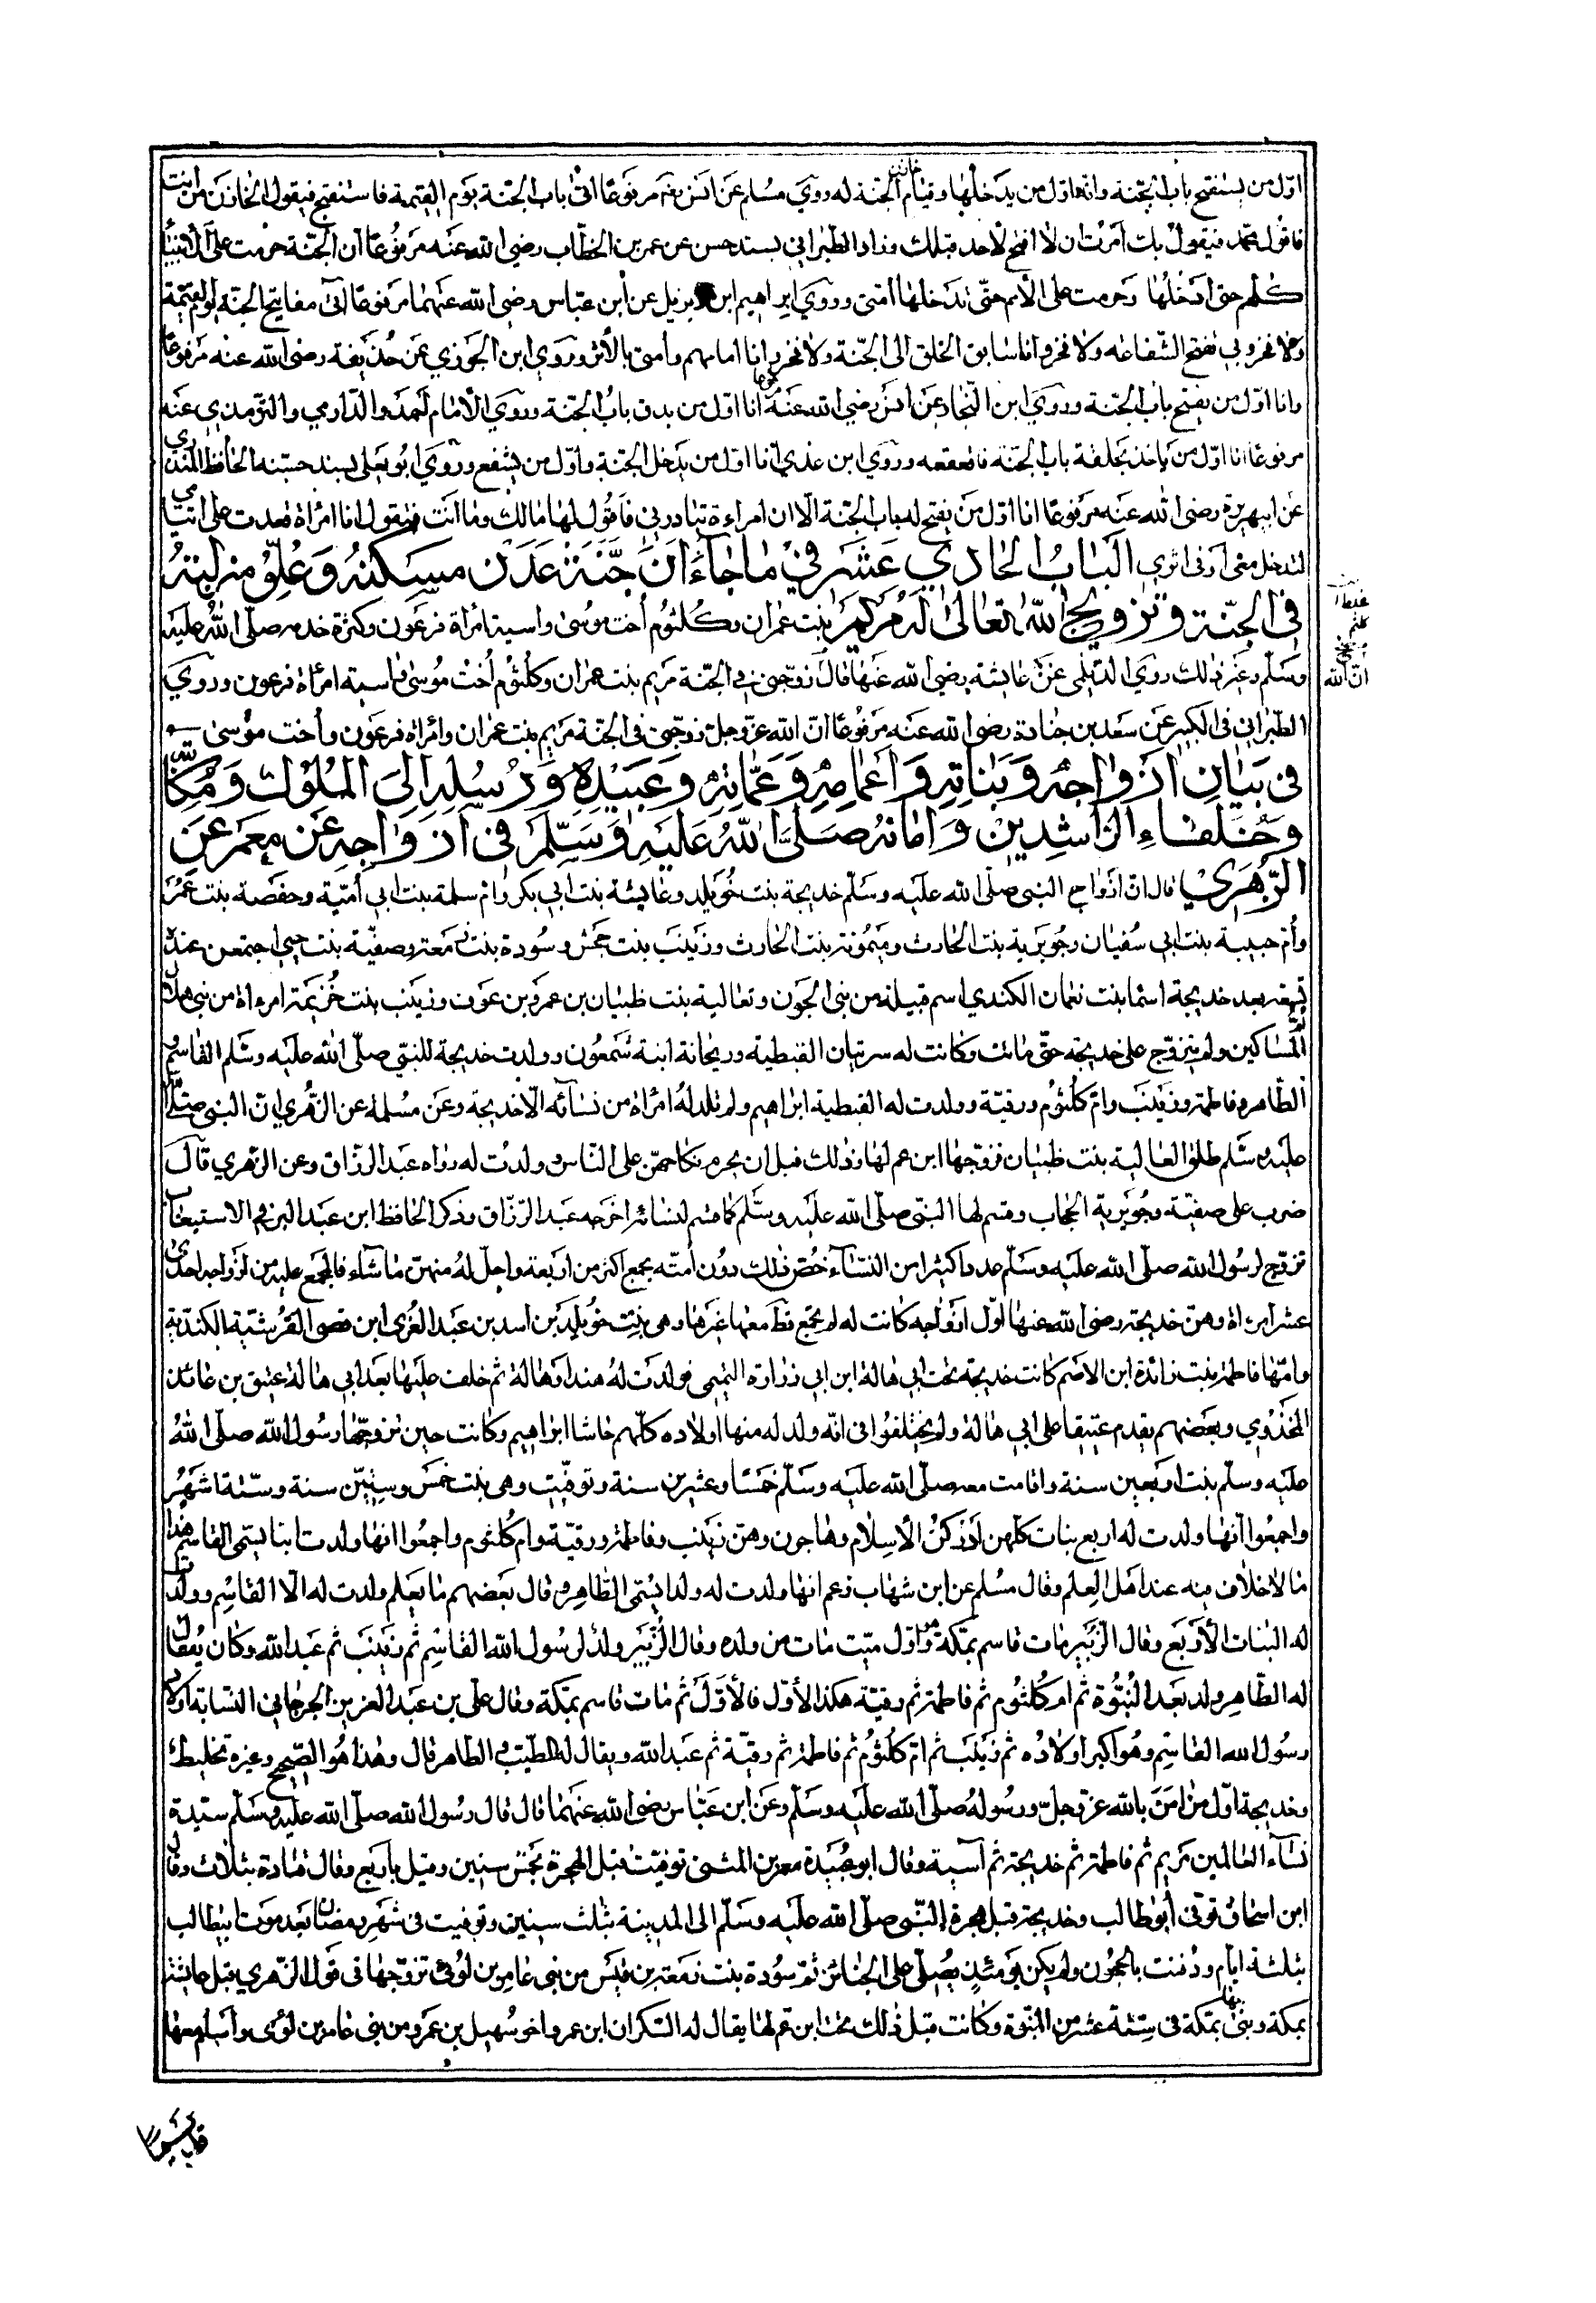 اوّل من يستفتح باب الجنة وانه اوّل من يدخلها وقيام خازن الجنة له روي مسلم عن انس رفعه مرفوعًا اتى باب الجنّة يوم القيمة فاستفتح فيقول الخازن من انت
فاقول محمّد فيقول بك امرت ان لا افتح لاحد قبلك وزاد الطبراني بسند حسن عن عمر بن الخطّاب رضي الله عنه مرفوعًا ان الجنّة حرمت على الانبيأ
كلهم حتى ادخلها وحرمت على الامم حتّى تدخلها امتى وروي ابراهيم ابن ديزيل عن ابن عبّاس رضي الله عنهما مرفوعًا اتى مفاتيح الجنّة يوم القيمة
ولا فخر وبي تفتح الشفاعه ولا فخر وانا سابق الخلق الى الجنّة ولا فخر وانا امامهم وأمتى بالأثر وروي ابن الجوزي عن حذيفة رضي الله عنه مرفوعًا
وانا اوّل من يفتح باب الجنّة وروي ابن النّجار عن انس رضي الله عنه مرفوعا انا اوّل من يدق باب الجنّة وروي الامام احمد والدّارمي والترمذي عنه
مرفوعا انا اوّل من يأخذ بحلقة باب الجنّة فاقعقعه وروي ابن عدي انا اوّل من يدخل الجنّة واوّل من يشفع وروي ابو يعلى بسند حسّنه الحافظ المنذري
عن ابي هريرة رضي الله عنه مرفوعًا انا اوّل من يفتح له باب الجنّة الّا ان امراءة تبادرني فاقول لها مالك وما انت فتقول انا امرأة قعدت على ايتامي
لتدخل معى او في اثري الباب الحادي عشر في ما جاء ان جنّة عدن مسكنه وعلوّ منزلته
في الجنّة وتزويج الله تعالى له مريم بنت عمران وكلثوم أخت موسى واسية امرأة فرعون وكثرة خدمه صلّى الله عليه
وسلّم وغير ذلك روي الديلمى عن عايشة رضي الله عنها قال زوّجنى في الجنّة مريم بنت عمران وكلثوم أخت موسى واسية امرأة فرعون وروي
الطّبراني في الكبير عن سعد بن جنادة رضي الله عنه مرفوعًا انّ الله عزّ وجل زوّجنى في الجنّة مريم بنت عمران وامرأة فرعون وأخت موسى
في بيان ازواجه وبناته واعمامه وعمّاته وعبيده ورسله الى الملوك ومكّ
وخلفاء الراشدين وامانه صلّى الله عليه وسلّم في ازواجه عن معمر عن
الزّهري قال انّ ازواج النبى صلّى الله عليه وسلّم خديجة بنت خويلد وعايشة بنت ابي بكر وامّ سلمة بنت ابي أميّة وحفصة بنت عمر
وأم حبيبة بنت ابي سفيان وجويرية بنت الحارث وميمونة بنت الحارث وزينب بنت جحش وسودة بنت زمعة وصفيّة بنت حيى اجتمعن عنده
تسعة بعد خديجة اسما بنت نعمان الكندي اسم قبيلة من بنى الجون وتعالية بنت ظبيان بن عمرو بن عون وزينب بنت خزيمة امرءاة من بنى هلال
امّ المساكين ولم يتزوّج على خديجة حتّى ماتت وكانت له سرتيان القبطية وريحانة ابنة شمعون وولدت خديجة للنبىّ صلّى الله عليه وسلّم القاسم و
الطّاهر وفاطمة وزينب وامّ كلثوم ورقيّة وولدت له القبطية ابراهيم ولم تلد له امرأة من نسائه الّا خديجة وعن مسلمة عن الزّهري انّ النبى صلّى الله
عليه وسلّم طلق العالية بنت ظبيان فزوّجها ابن عم لها وذلك قبل ان يحرم نكاحهنّ على النّاس وولدت له رواه عبد الرزّاق وعن الزهري قال
ضرب على صفيّة وجويرية الحجاب وقسم لها النبىّ صلّى الله عليه وسلّم كما قسم لنسائه اخرجه عبد الرّزّاق وذكر الحافظ ابن عبد البر في الاستيعاب
تزوّج لرسول الله صلّى الله عليه وسلّم عددا كثيرا من النساء خصّ ذلك دون أمته بجمع اكثر من اربعة واحلّ له منهنّ ما شاء فالمجمع عليه من ازواجه احدى
عشر امرءاة وهنّ خديجة رضي الله عنها اول ازواجه كانت له لم يجمع قط معها غيرها وهى بنت خويلد بن اسد بن عبد العزى ابن قصى القريشيّة الكندية
وامّها فاطمة بنت زائدة ابن الاصم كانت خديجة تحت ابي هالة ابن ابي زرارة التيمى فولدت له هندا وهالة ثم خلف عليها بعد ابي هالة عتيق بن عائذ
المخذوي وبعضهم يقدم عتيقا على ابي هالة ولم يختلفوا في انّه ولد له منها اولاده كلّهم حاشا ابراهيم وكانت حين تزوجها رسول الله صلّى الله
عليه وسلّم بنت اربعين سنة واقامت معه صلّى الله عليه وسلّم خمسًا وعشرين سنة وتوفّيت وهى بنت خمس وستّين سنة وستّة اشهر
واجمعوا انها ولدت له اربع بنات كلهن ادركن الاسلام وهاجرن وهنّ زينب وفاطمة ورقيّة وام كلثوم واجمعوا انها ولدت ابنا يسمى القاسم هذا
ما لا خلاف فيه عند اهل العلم وقال مسلم عن ابن شهاب زعم انها ولدت له ولدا يسمّى الطّاهر وقال بعضهم ما يعلم ولدت له الّا القاسم وولدت
له البنات الأربع وقال الزّبير مات قاسم بمكّة وهو اوّل ميّت مات من ولده وقال الزّبير ولد لرسول الله القاسم ثم زينب ثم عبد الله وكان يقال
له الطّاهر ولد بعد النبوّة ثم ام كلثوم ثم فاطمة ثم رقيّة هكذا الأوّل فالأوّل ثم مات قاسم بمكّة وقال علي بن عبد العزيز الجرجاني النسّابة اولاد
رسول الله القاسم وهو اكبر اولاده ثم زينب ثم امّ كلثوم ثم فاطمة ثم رقيّة ثم عبد الله ويقال له الطيّب و الطاهر قال وهذا هو الصّحيح وغيره تخليط
وخديجة اوّل من امن بالله عزّ وجلّ ورسوله صلّى الله عليه وسلّم وعن ابن عبّاس رضي الله عنهما قال قال رسول الله صلّى الله عليه وسلّم سيّدة
نساء العالمين مريم ثم فاطمة ثم خديجة ثم آسية وقال ابو عبيدة معمر بن المثنى توفيت قبل الهجرة بخمس سنين وقيل باربع وقال قتادة بثلاث وقال
ابن اسحاق توفّى ابو طالب وخديجة قبل هجرة النبّى صلّى الله عليه وسلّم الى المدينة بثلث سنين وتوفيت في شهر رمضان بعد موت ابيطالب
بثلثة ايّام ودفنت بالحجون ولم يكن يومئذ يصلّى على الجنائز ثمّ سودة بنت زمعة بن قيس من بنى عامر بن لوى تزوّجها في قول الزّهري قبل عايشة
بمكة وبنى بها بمكة في ستّة عشر من النبوّة وكانت قبل ذلك تحت ابن عم لها يقال له السكران ابن عمر واخو سهيل بن عمرو من بنى عامر بن لؤى واسلم معها